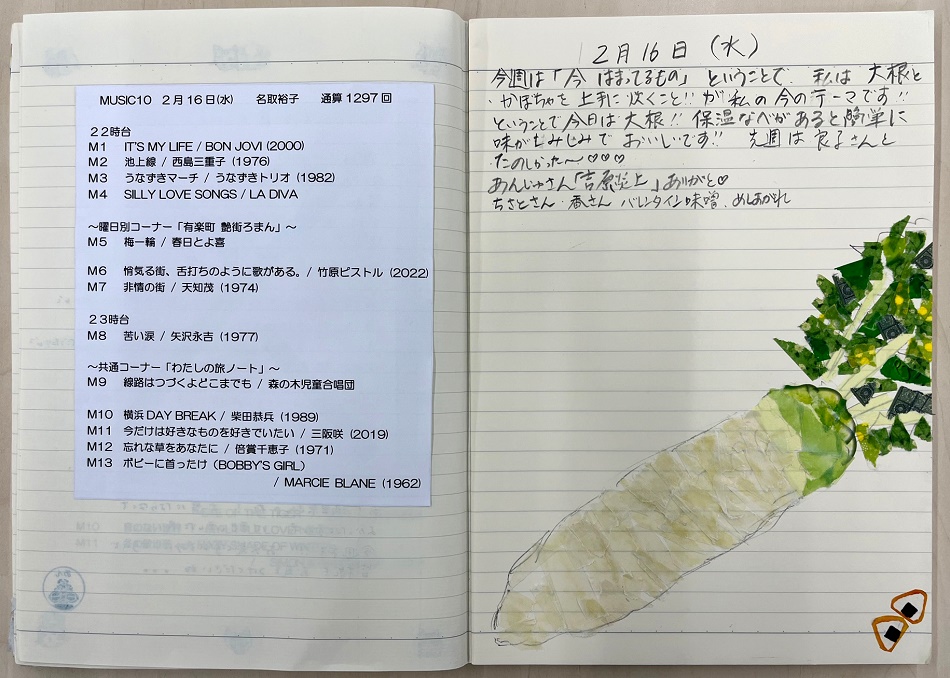 MUSIC10 2月16日(水) 名取裕子 通算1297回
22時台
M1 IT'S MY LIFE / BON JOVI (2000)
M2 池上線 / 西島三重子 (1976)
M3 うなずきマーチ / うなずきトリオ (1982)
M4 SILLY LOVE SONGS / LA DIVA
～曜日別コーナー「有楽町 艶街ろまん」～
M5 梅一輪 / 春日とよ喜
M6 悋気る街、舌打ちのように歌がある。/ 竹原ピストル (2022)
M7 非情の街 / 天知茂 (1974)
23時台
M8 苦い涙 / 矢沢永吉 (1977)
～共通コーナー「わたしの旅ノート」～
M9 線路はつづくよどこまでも / 森の木児童合唱団
M10 横浜 DAY BREAK / 柴田恭兵 (1989)
M11 今だけは好きなものを好きでいたい / 三阪咲 (2019)
M12 忘れな草をあなたに / 倍賞千恵子 (1971)
M13 ボビーに首ったけ (BOBBY'S GIRL)
/ MARCIE BLANE (1962)
2月16日 (水)
今週は「今 はまってるもの」ということで、私は 大根と
かぼちゃを 上手に 炊くこと!! が 私の 今のテーマです!!
ということで今日は 大根!! 保温なべがあると簡単に
味がしみじみで おいしいです!! 先週は 良子さんと
たのしかった～♡♡♡
あんじゅさん「吉原炎上」ありがと♡
ちさとさん 香さん バレンタイン味噌、めしあがれ